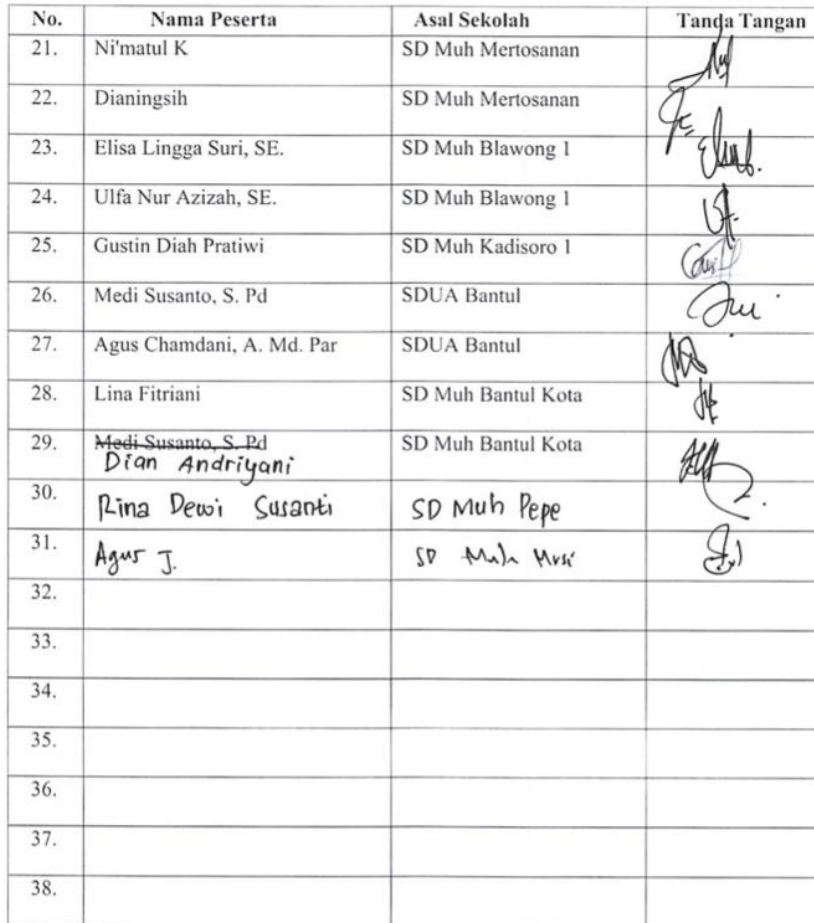 No. Nama Peserta Asal Sekolah Tanda Tangan
21. Ni'matul K SD Muh Mertosanan
22. Dianingsih SD Muh Mertosanan
23. Elisa Lingga Suri, SE. SD Muh Blawong 1
24. Ulfa Nur Azizah, SE. SD Muh Blawong 1
25. Gustin Diah Pratiwi SD Muh Kadisoro 1
26. Medi Susanto, S. Pd SDUA Bantul
27. Agus Chamdani, A. Md. Par SDUA Bantul
28. Lina Fitriani SD Muh Bantul Kota
29. Medi Susanto, S. Pd SD Muh Bantul Kota
Dian Andriyani
30. Rina Dewi Susanti SD Muh Pepe
31. Agus J. SD Muh
32.
33.
34.
35.
36.
37.
38.